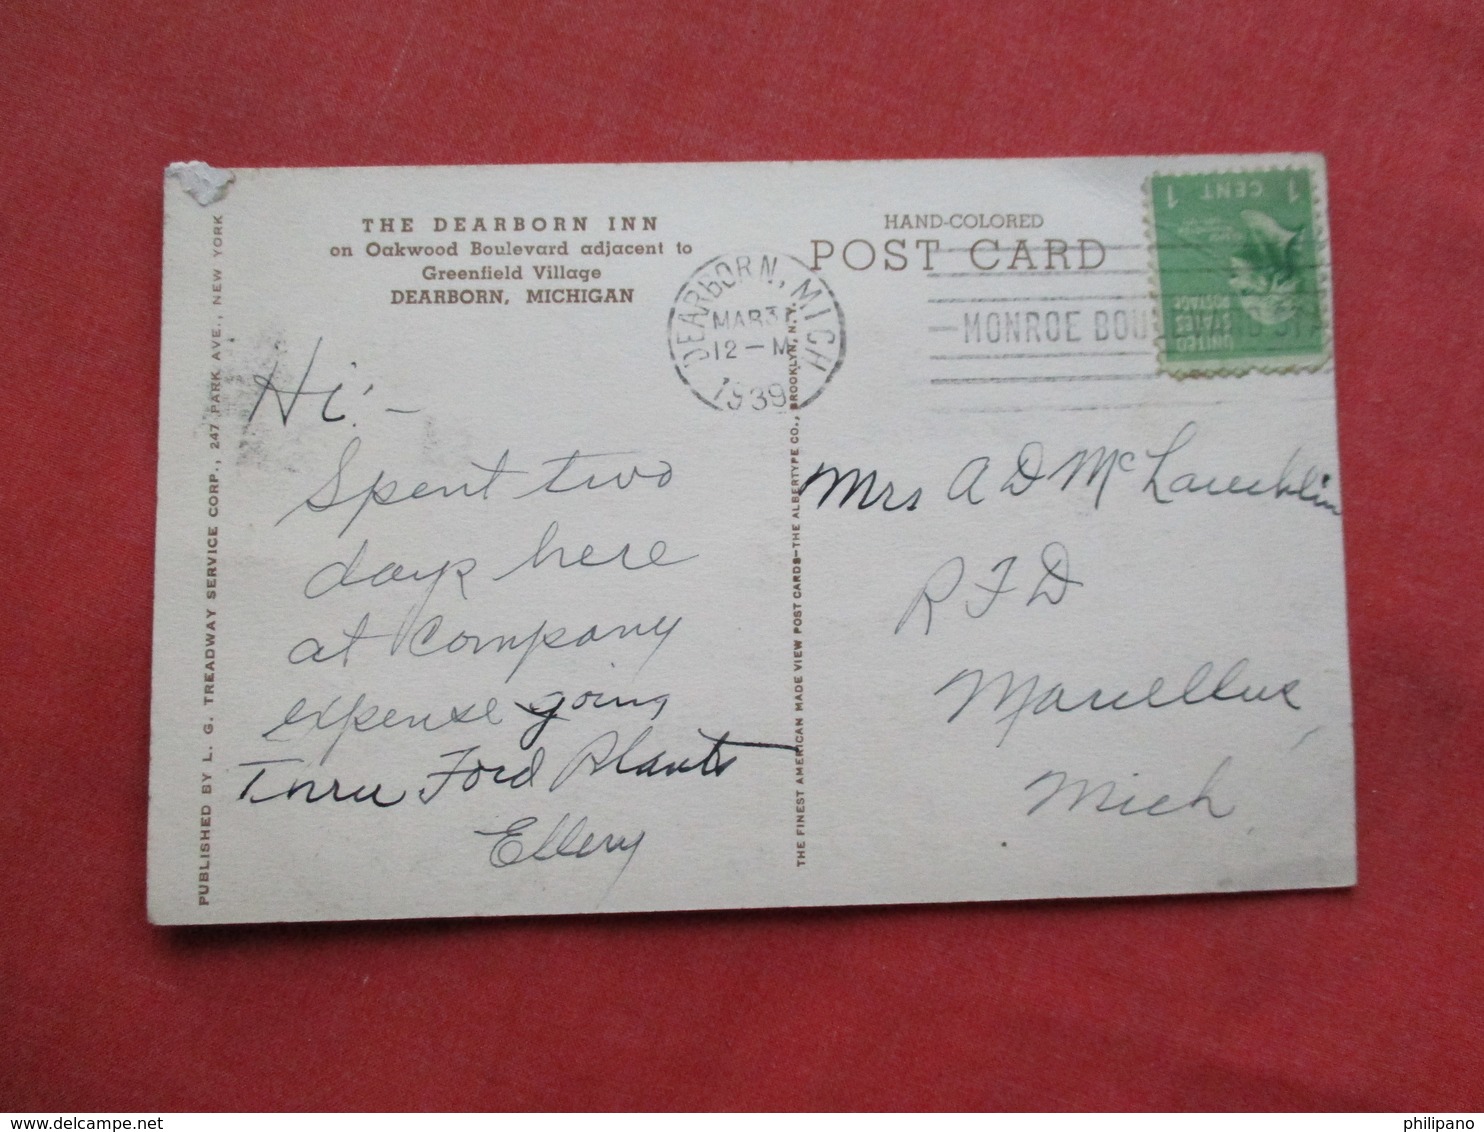 THE DEARBORN INN
on Oakwood Boulevard adjacent to
Greenfield Village
DEARBORN, MICHIGAN
HAND-COLORED
POST CARD
DEARBORN, MICH
MAR 31
12-M
1939
MONROE BOU
1 CENT 1
UNITED
STATES
POSTAGE
Hi:-
Spent two
days here
at Company
expense going
Thru Ford Plants
Ellery
Mrs A D McLaughlin
R F D
Marcellus,
Mich
PUBLISHED BY L. G. TREADWAY SERVICE CORP., 247 PARK AVE., NEW YORK
THE FINEST AMERICAN MADE VIEW POST CARDS—THE ALBERTYPE CO., BROOKLYN, N.Y.
philipano